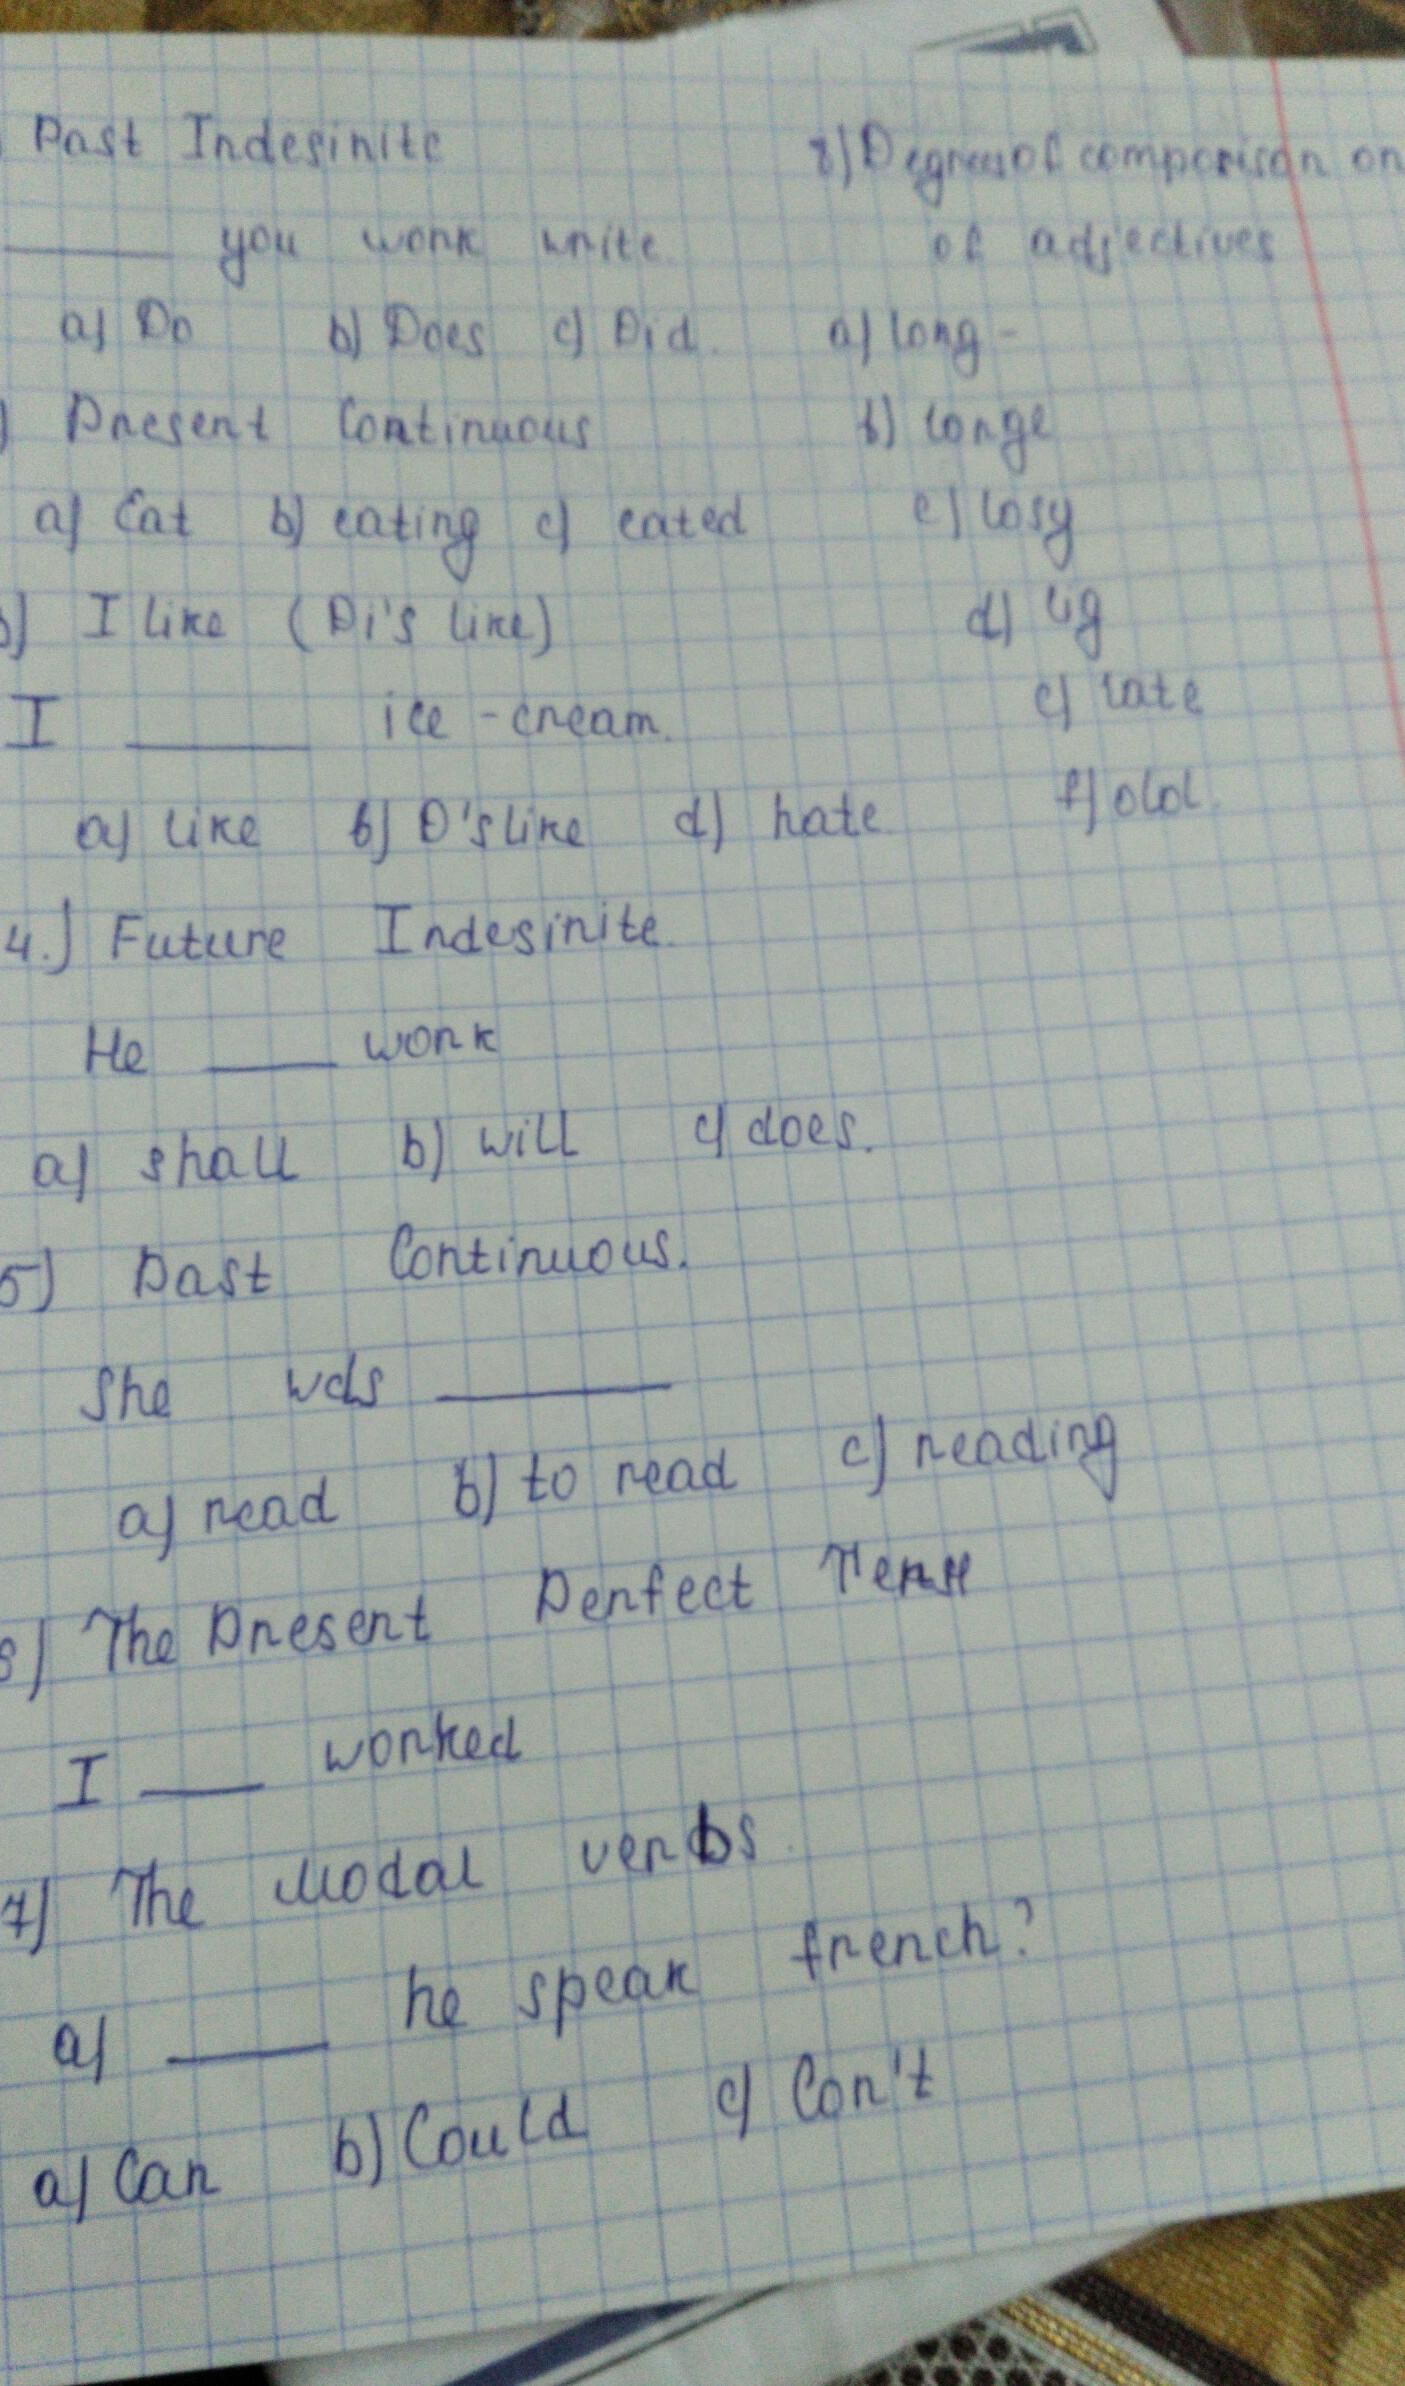 Past Indesinite
____ you work write.
a) Do b) Does c) Did.
) Present Continuous
a) Eat b) eating c) eated
) I like (Di's like)
I ____ ice-cream.
a) like b) D'slike d) hate
4.) Future Indesinite.
He ____ work
a) shall b) will c) does.
5) Past Continuous.
She was ____
a) read b) to read c) reading
) The Present Perfect Tense
I ____ worked
7) The Modal verbs.
a) ____ he speak french?
a) Can b) Could c) Con't
8) Degrees of comporison on
of adjectives
a) long -
b) longe
c)
d)
e) late
f) old.